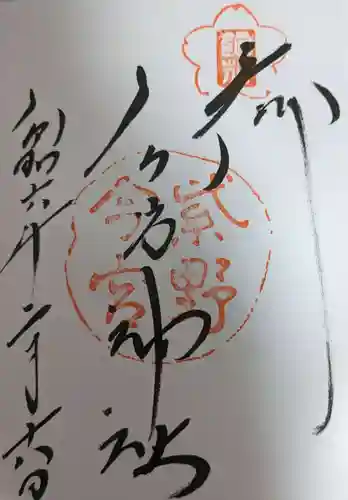 奉拝
今宮神社
紫野
今宮
令和六年二月十六日